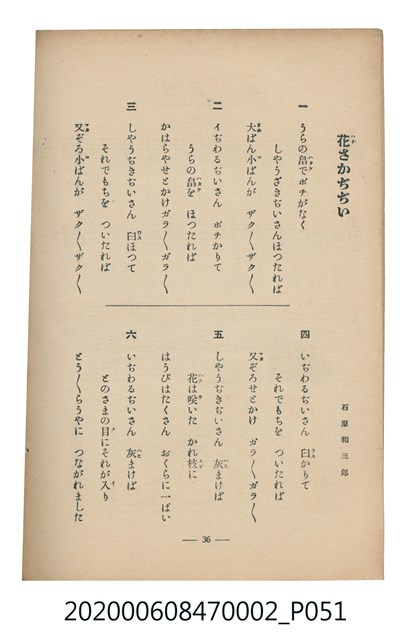 花さかぢぢい
石原和三郎
一 うらの畠でポチがなく
しやうぢきぢいさんほつたれば
大ばん小ばんが ザク〱ザク〱
二 イぢわるぢいさん ポチかりて
うらの畠を ほつたれば
かはらやせとかけガラ〱ガラ〱
三 しやうぢきぢいさん 臼ほつて
それでもちを ついたれば
又ぞろ小ばんが ザク〱ザク〱
四 いぢわるぢいさん 臼かりて
それでもちを ついたれば
又ぞろせとかけ ガラ〱ガラ〱
五 しやうぢきぢいさん 灰まけば
花は咲いた かれ枝に
はうびはたくさん おくらに一ぱい
六 いぢわるぢいさん 灰まけば
とのさまの目にそれが入り
とう〱らうやに つながれました
— 36 —
202000608470002_P051